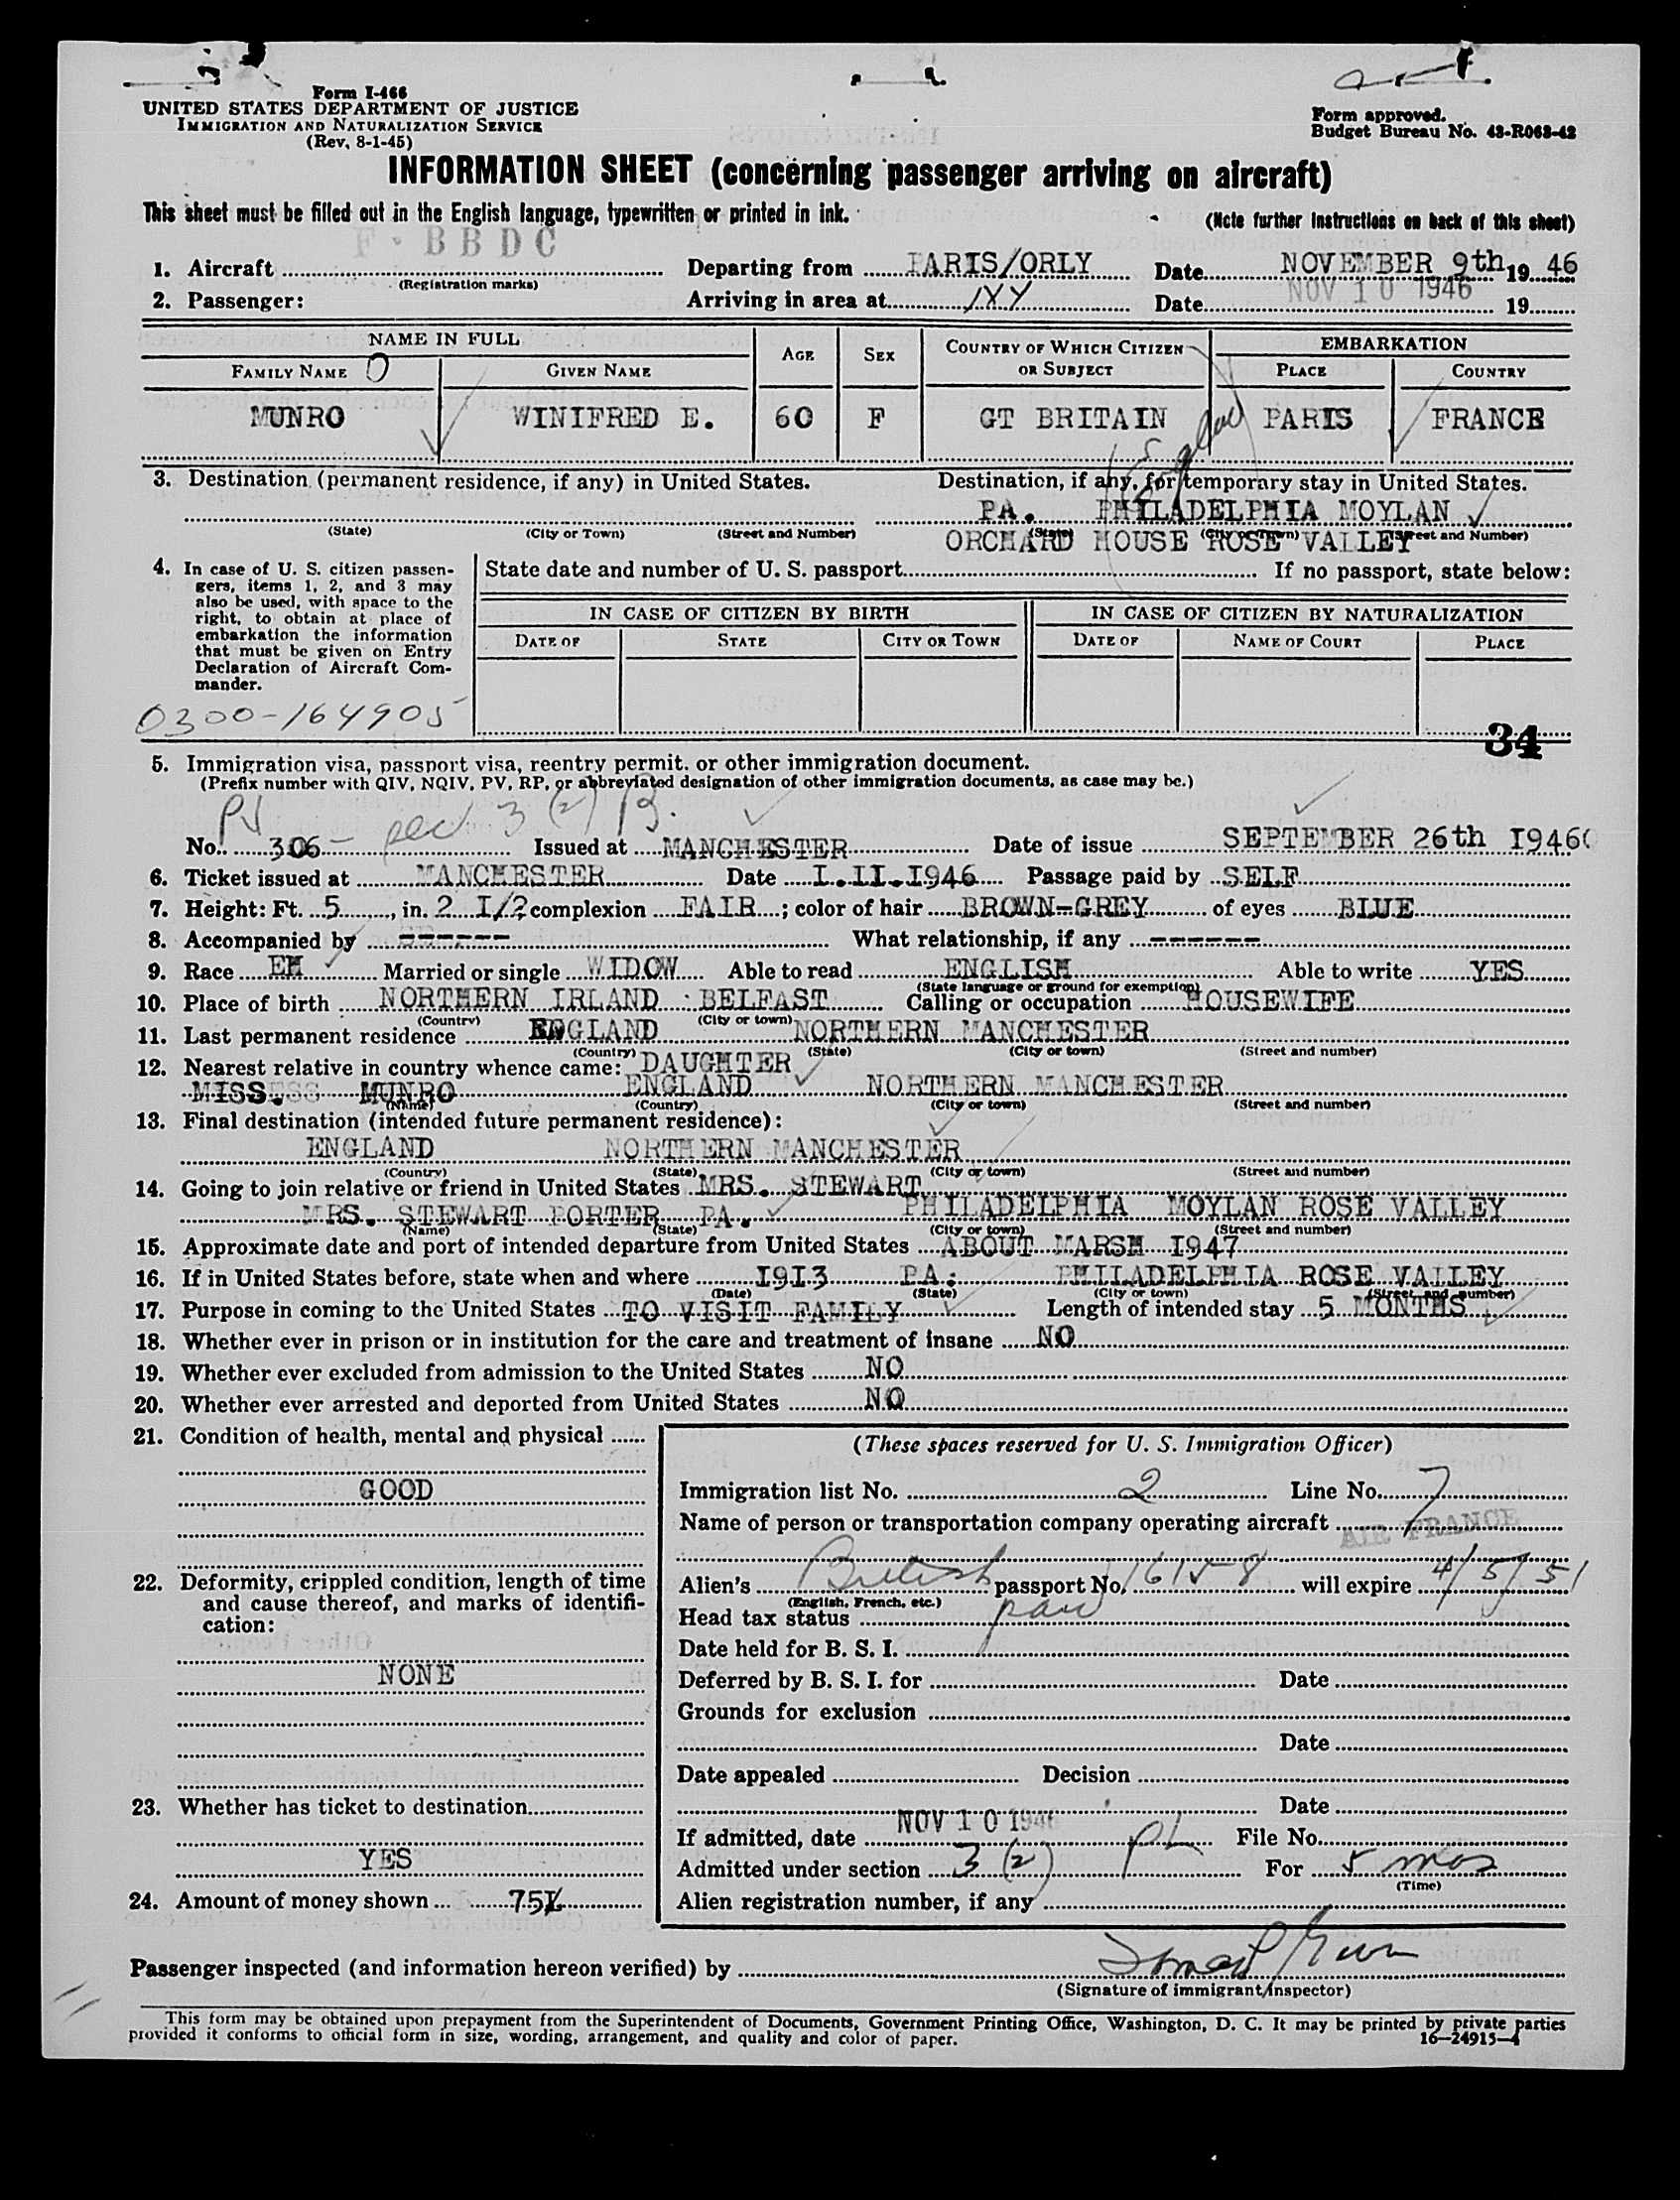 Form I-466
UNITED STATES DEPARTMENT OF JUSTICE
IMMIGRATION AND NATURALIZATION SERVICE
(Rev. 8-1-45)
Form approved.
Budget Bureau No. 43-R063-42
INFORMATION SHEET (concerning passenger arriving on aircraft)
This sheet must be filled out in the English language, typewritten or printed in ink.
(Note further instructions on back of this sheet)
F-BBDC
1. Aircraft (Registration marks) Departing from PARIS/ORLY Date NOVEMBER 9th 19 46
2. Passenger: Arriving in area at Date NOV 10 1946 19
NAME IN FULL
AGE SEX COUNTRY OF WHICH CITIZEN OR SUBJECT EMBARKATION
FAMILY NAME GIVEN NAME PLACE COUNTRY
MUNRO WINIFRED E. 60 F GT BRITAIN PARIS FRANCE
England
3. Destination (permanent residence, if any) in United States. Destination, if any, for temporary stay in United States.
PA. PHILADELPHIA MOYLAN
(State) (City or Town) (Street and Number) (State) (City or Town) (Street and Number)
ORCHARD HOUSE ROSE VALLEY
4. In case of U. S. citizen passengers, items 1, 2, and 3 may also be used, with space to the right, to obtain at place of embarkation the information that must be given on Entry Declaration of Aircraft Commander.
State date and number of U. S. passport If no passport, state below:
IN CASE OF CITIZEN BY BIRTH IN CASE OF CITIZEN BY NATURALIZATION
DATE OF STATE CITY OR TOWN DATE OF NAME OF COURT PLACE
0300-164905
34
5. Immigration visa, passport visa, reentry permit. or other immigration document.
(Prefix number with QIV, NQIV, PV, RP, or abbreviated designation of other immigration documents, as case may be.)
PV 3 (2)
No. 306 Issued at MANCHESTER Date of issue SEPTEMBER 26th I946
6. Ticket issued at MANCHESTER Date I.II.I946 Passage paid by SELF
7. Height: Ft. 5, in. 2 I/2 complexion FAIR; color of hair BROWN-GREY of eyes BLUE
8. Accompanied by ------ What relationship, if any ------
9. Race EH Married or single WIDOW Able to read ENGLISH Able to write YES
(State language or ground for exemption)
10. Place of birth NORTHERN IRLAND : BELFAST Calling or occupation HOUSEWIFE
(Country) (City or town)
11. Last permanent residence ENGLAND NORTHERN MANCHESTER
(Country) (State) (City or town) (Street and number)
12. Nearest relative in country whence came: DAUGHTER
MISS. MUNRO ENGLAND NORTHERN MANCHESTER
(Name) (Country) (City or town) (Street and number)
13. Final destination (intended future permanent residence):
ENGLAND NORTHERN MANCHESTER
(Country) (State) (City or town) (Street and number)
14. Going to join relative or friend in United States MRS. STEWART
MRS. STEWART PORTER PA. PHILADELPHIA MOYLAN ROSE VALLEY
(Name) (State) (City or town) (Street and number)
15. Approximate date and port of intended departure from United States ABOUT MARSH I947
16. If in United States before, state when and where I9I3 PA: PHILADELPHIA ROSE VALLEY
(Date) (State) (City or town) (Street and number)
17. Purpose in coming to the United States TO VISIT FAMILY Length of intended stay 5 MONTHS
18. Whether ever in prison or in institution for the care and treatment of insane NO
19. Whether ever excluded from admission to the United States NO
20. Whether ever arrested and deported from United States NO
21. Condition of health, mental and physical
GOOD
22. Deformity, crippled condition, length of time and cause thereof, and marks of identification:
NONE
23. Whether has ticket to destination
YES
24. Amount of money shown 75
(These spaces reserved for U. S. Immigration Officer)
Immigration list No. 2 Line No. 7
Name of person or transportation company operating aircraft AIR FRANCE
Alien's British passport No. 16158 will expire 4/5/51
(English, French, etc.)
Head tax status paid
Date held for B. S. I.
Deferred by B. S. I. for Date
Grounds for exclusion
Date
Date appealed Decision
Date
If admitted, date NOV 10 1946 File No.
Admitted under section 3 (2) PL For 5 mos
(Time)
Alien registration number, if any
Passenger inspected (and information hereon verified) by
(Signature of immigrant inspector)
This form may be obtained upon prepayment from the Superintendent of Documents, Government Printing Office, Washington, D. C. It may be printed by private parties
provided it conforms to official form in size, wording, arrangement, and quality and color of paper.
16—24915-4